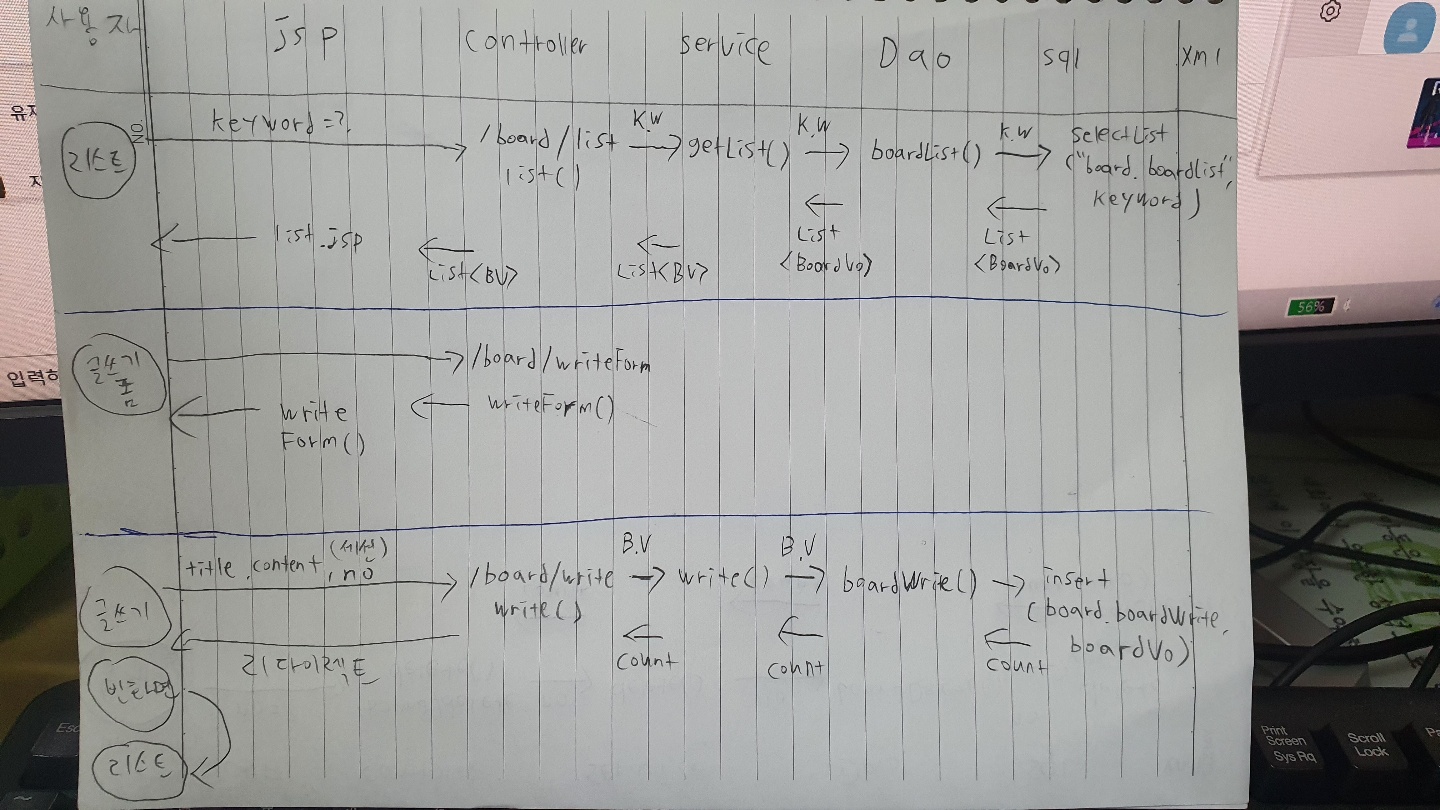 사용자 jsp controller service Dao sql xml
리스트
NO.
keyword=?
/board/list
list()
K.W
getList()
K.W
boardList()
K.W
selectList
("board.boardlist",
keyword)
list.jsp
List<BV>
List<BV>
List
<BoardVo>
List
<BoardVo>
글쓰기
폼
/board/writeForm
writeForm()
write
Form()
글쓰기
title, content, (세션)
, no
/board/write
write()
B.V
write()
B.V
boardWrie()
insert
(board.boardWrite,
boardVo)
리다이렉트
count
count
count
빈화면
리스트
유지
입력하
56%
Esc
Print
Screen
Sys Rq
Scroll
Lock